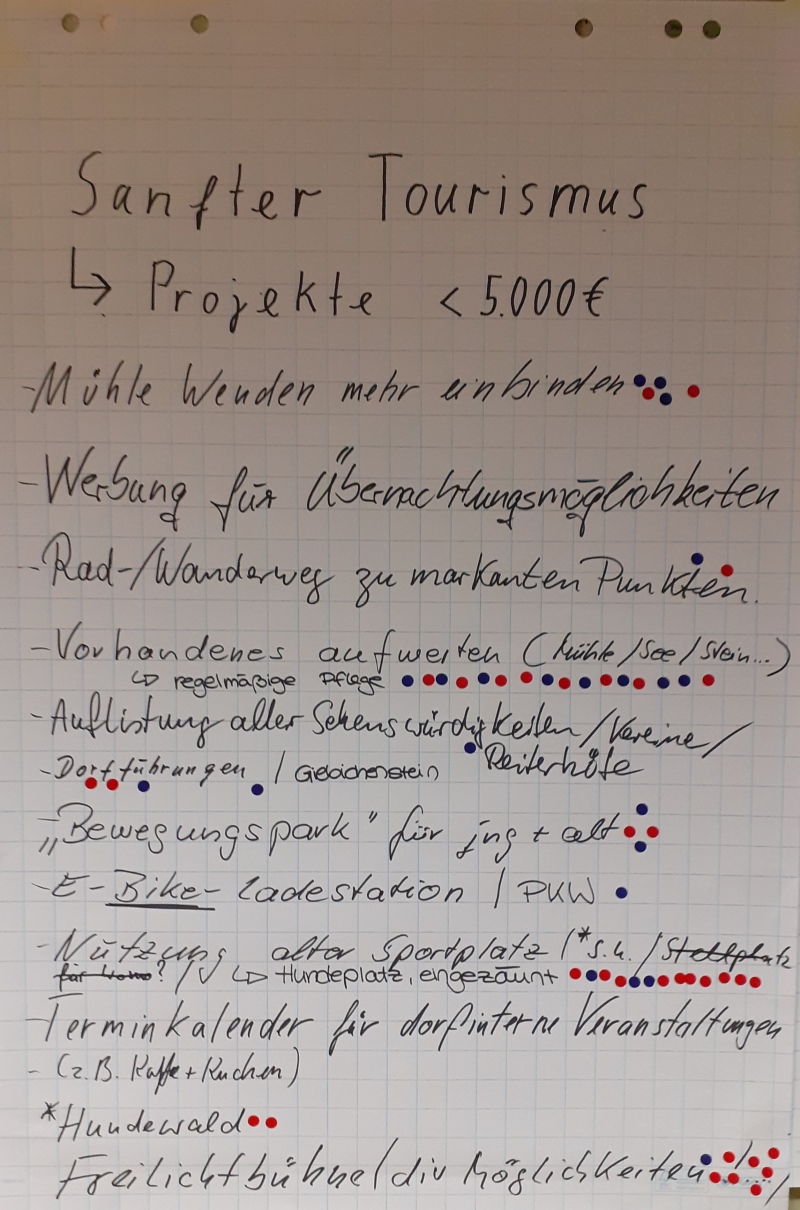 Sanfter Tourismus
↳ Projekte < 5.000€
- Mühle Wenden mehr einbinden
- Werbung für Übernachtungsmöglichkeiten
- Rad-/Wanderweg zu markanten Punkten.
- Vorhandenes aufwerten (Mühle/See/Stein...)
↳ regelmäßige Pflege
- Auflistung aller Sehenswürdigkeiten/Vereine/
Reiterhöfe
- Dorfführungen / Giebichenstein
- „Bewegungspark" für jng + alt
- E-Bike-Ladestation / PKW
- Nutzung alter Sportplatz /*s.u./Stellplatz
für ? / ↳ Hundeplatz, eingezäunt
- Terminkalender für dorfinterne Veranstaltungen
- (z.B. Kaffe + Kuchen)
*Hundewald
Freilichtbühne/div Möglichkeiten